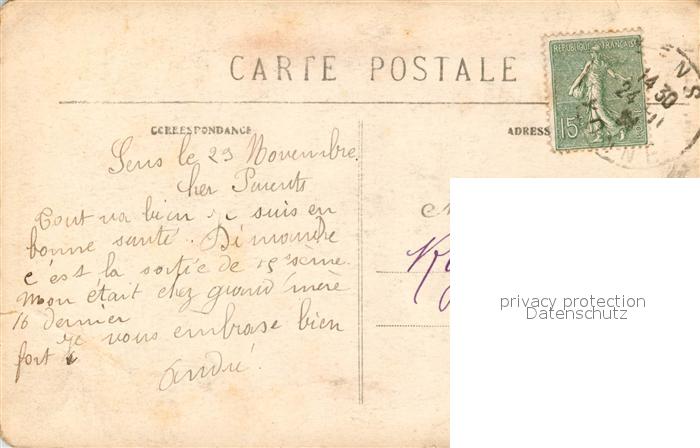 CARTE POSTALE
REPUBLIQUE FRANÇAISE
15
ENS
14 30
24
NE
CORRESPONDANCE
ADRESS
Sens le 23 Novembre
cher Parents
Tout va bien je suis en
bonne santé. Dimanche
c'est la sortie de
Mon était chez grand mère
16 dernier
Je vous embrase bien
fort
André.
privacy protection
Datenschutz